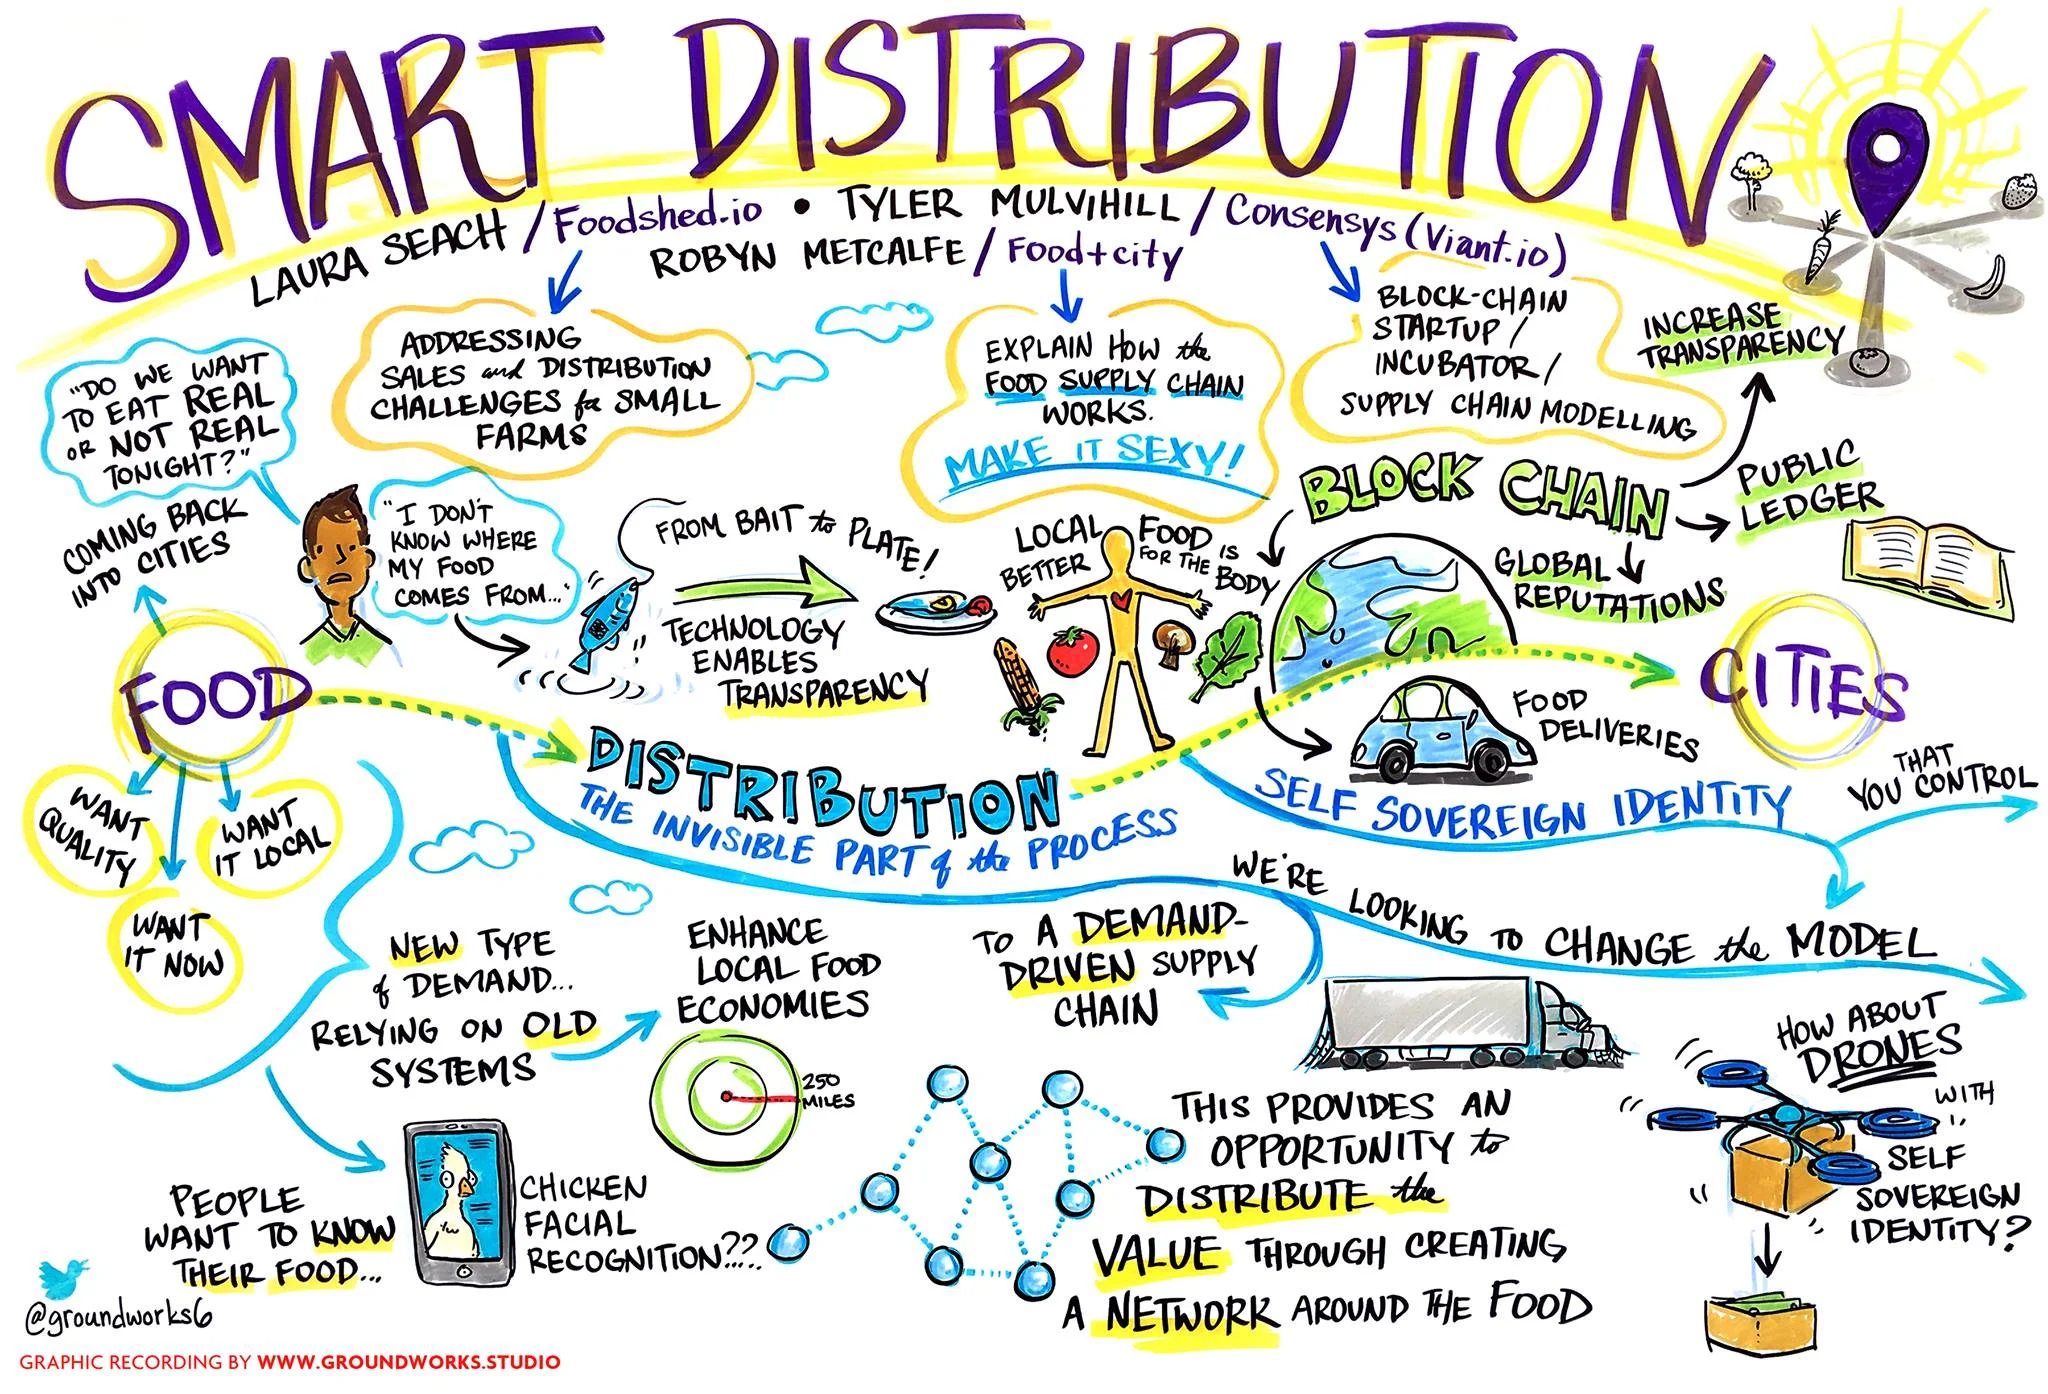 SMART DISTRIBUTION
LAURA SEACH / Foodshed.io • TYLER MULVIHILL / Consensys (Viant.io)
ROBYN METCALFE / Food+city
ADDRESSING
SALES and DISTRIBUTION
CHALLENGES for SMALL
FARMS
EXPLAIN HOW the
FOOD SUPPLY CHAIN
WORKS.
MAKE IT SEXY!
BLOCK-CHAIN
STARTUP /
INCUBATOR /
SUPPLY CHAIN MODELLING
INCREASE
TRANSPARENCY
"DO WE WANT
TO EAT REAL
OR NOT REAL
TONIGHT?"
COMING BACK
INTO CITIES
"I DON'T
KNOW WHERE
MY FOOD
COMES FROM..."
FROM BAIT to PLATE!
TECHNOLOGY
ENABLES
TRANSPARENCY
LOCAL FOOD IS
BETTER FOR THE BODY
BLOCK CHAIN
PUBLIC
LEDGER
GLOBAL
REPUTATIONS
FOOD
CITIES
FOOD
DELIVERIES
DISTRIBUTION
THE INVISIBLE PART of the PROCESS
SELF SOVEREIGN IDENTITY
THAT
YOU CONTROL
WANT
QUALITY
WANT
IT LOCAL
WANT
IT NOW
NEW TYPE
of DEMAND...
RELYING ON OLD
SYSTEMS
ENHANCE
LOCAL FOOD
ECONOMIES
250
MILES
WE'RE LOOKING TO CHANGE the MODEL
TO A DEMAND-
DRIVEN SUPPLY
CHAIN
HOW ABOUT
DRONES
WITH
SELF
SOVEREIGN
IDENTITY?
PEOPLE
WANT TO KNOW
THEIR FOOD...
CHICKEN
FACIAL
RECOGNITION???
THIS PROVIDES AN
OPPORTUNITY to
DISTRIBUTE the
VALUE THROUGH CREATING
A NETWORK AROUND THE FOOD
@groundworks6
GRAPHIC RECORDING BY WWW.GROUNDWORKS.STUDIO